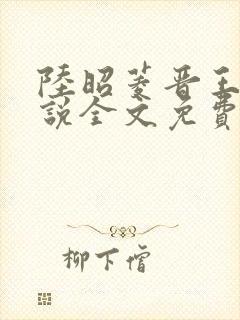 陸昭菱晋王
說全文免費
柳下僧